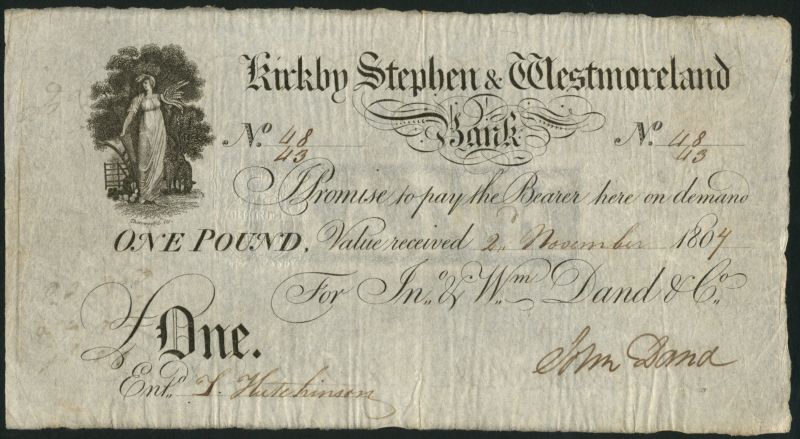 Kirkby Stephen & Westmoreland
Bank
No. 48/43 No. 48/43
I Promise to pay the Bearer here on demand
ONE POUND. Value received 2d. November 1804
For Jno. & Wm. Dand & Co.
£ One.
John Dand
Entd. T. Hutchinson